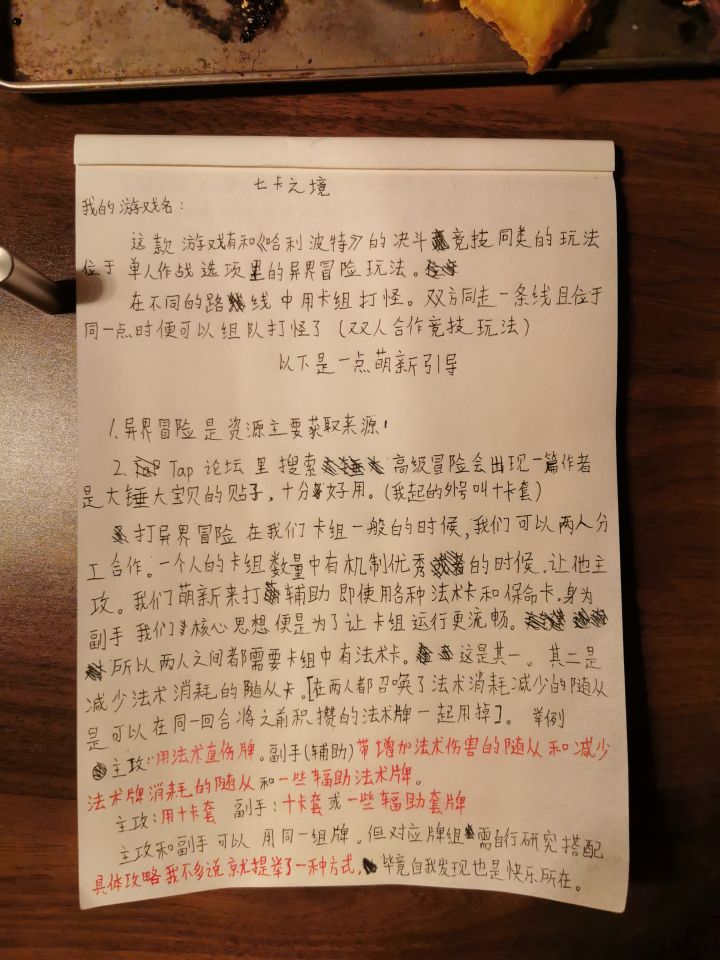 七卡之境
我的游戏名：
这款游戏有和《哈利波特》的决斗竞技同类的玩法
位于单人作战选项里的异界冒险玩法。
在不同的路线中用卡组打怪。双方同走一条线且位于
同一点时便可以组队打怪了（双人合作竞技玩法）
以下是一点萌新引导
1.异界冒险是资源主要获取来源
2.Tap论坛里搜索高级冒险会出现一篇作者
是大锤大宝贝的贴子，十分好用。（我起的外号叫十卡套）
打异界冒险在我们卡组一般的时候，我们可以两人分
工合作。一个人的卡组数量中有机制优秀的时候，让他主
攻。我们萌新来打辅助即使用各种法术卡和保命卡。身为
副手我们核心思想便是为了让卡组运行更流畅。
所以两人之间都需要卡组中有法术卡。这是其一。其二是
减少法术消耗的随从卡。[在两人都召唤了法术消耗减少的随从
是可以在同一回合将之前积攒的法术牌一起用掉]。举例
主攻：用法术直伤牌。副手（辅助）带增加法术伤害的随从和减少
法术牌消耗的随从和一些辐助法术牌。
主攻：用十卡套 副手：十卡套或一些辐助套牌
主攻和副手可以用同一组牌。但对应牌组需自行研究搭配
具体攻略我不多说就提举了一种方式，毕竟自我发现也是快乐所在。